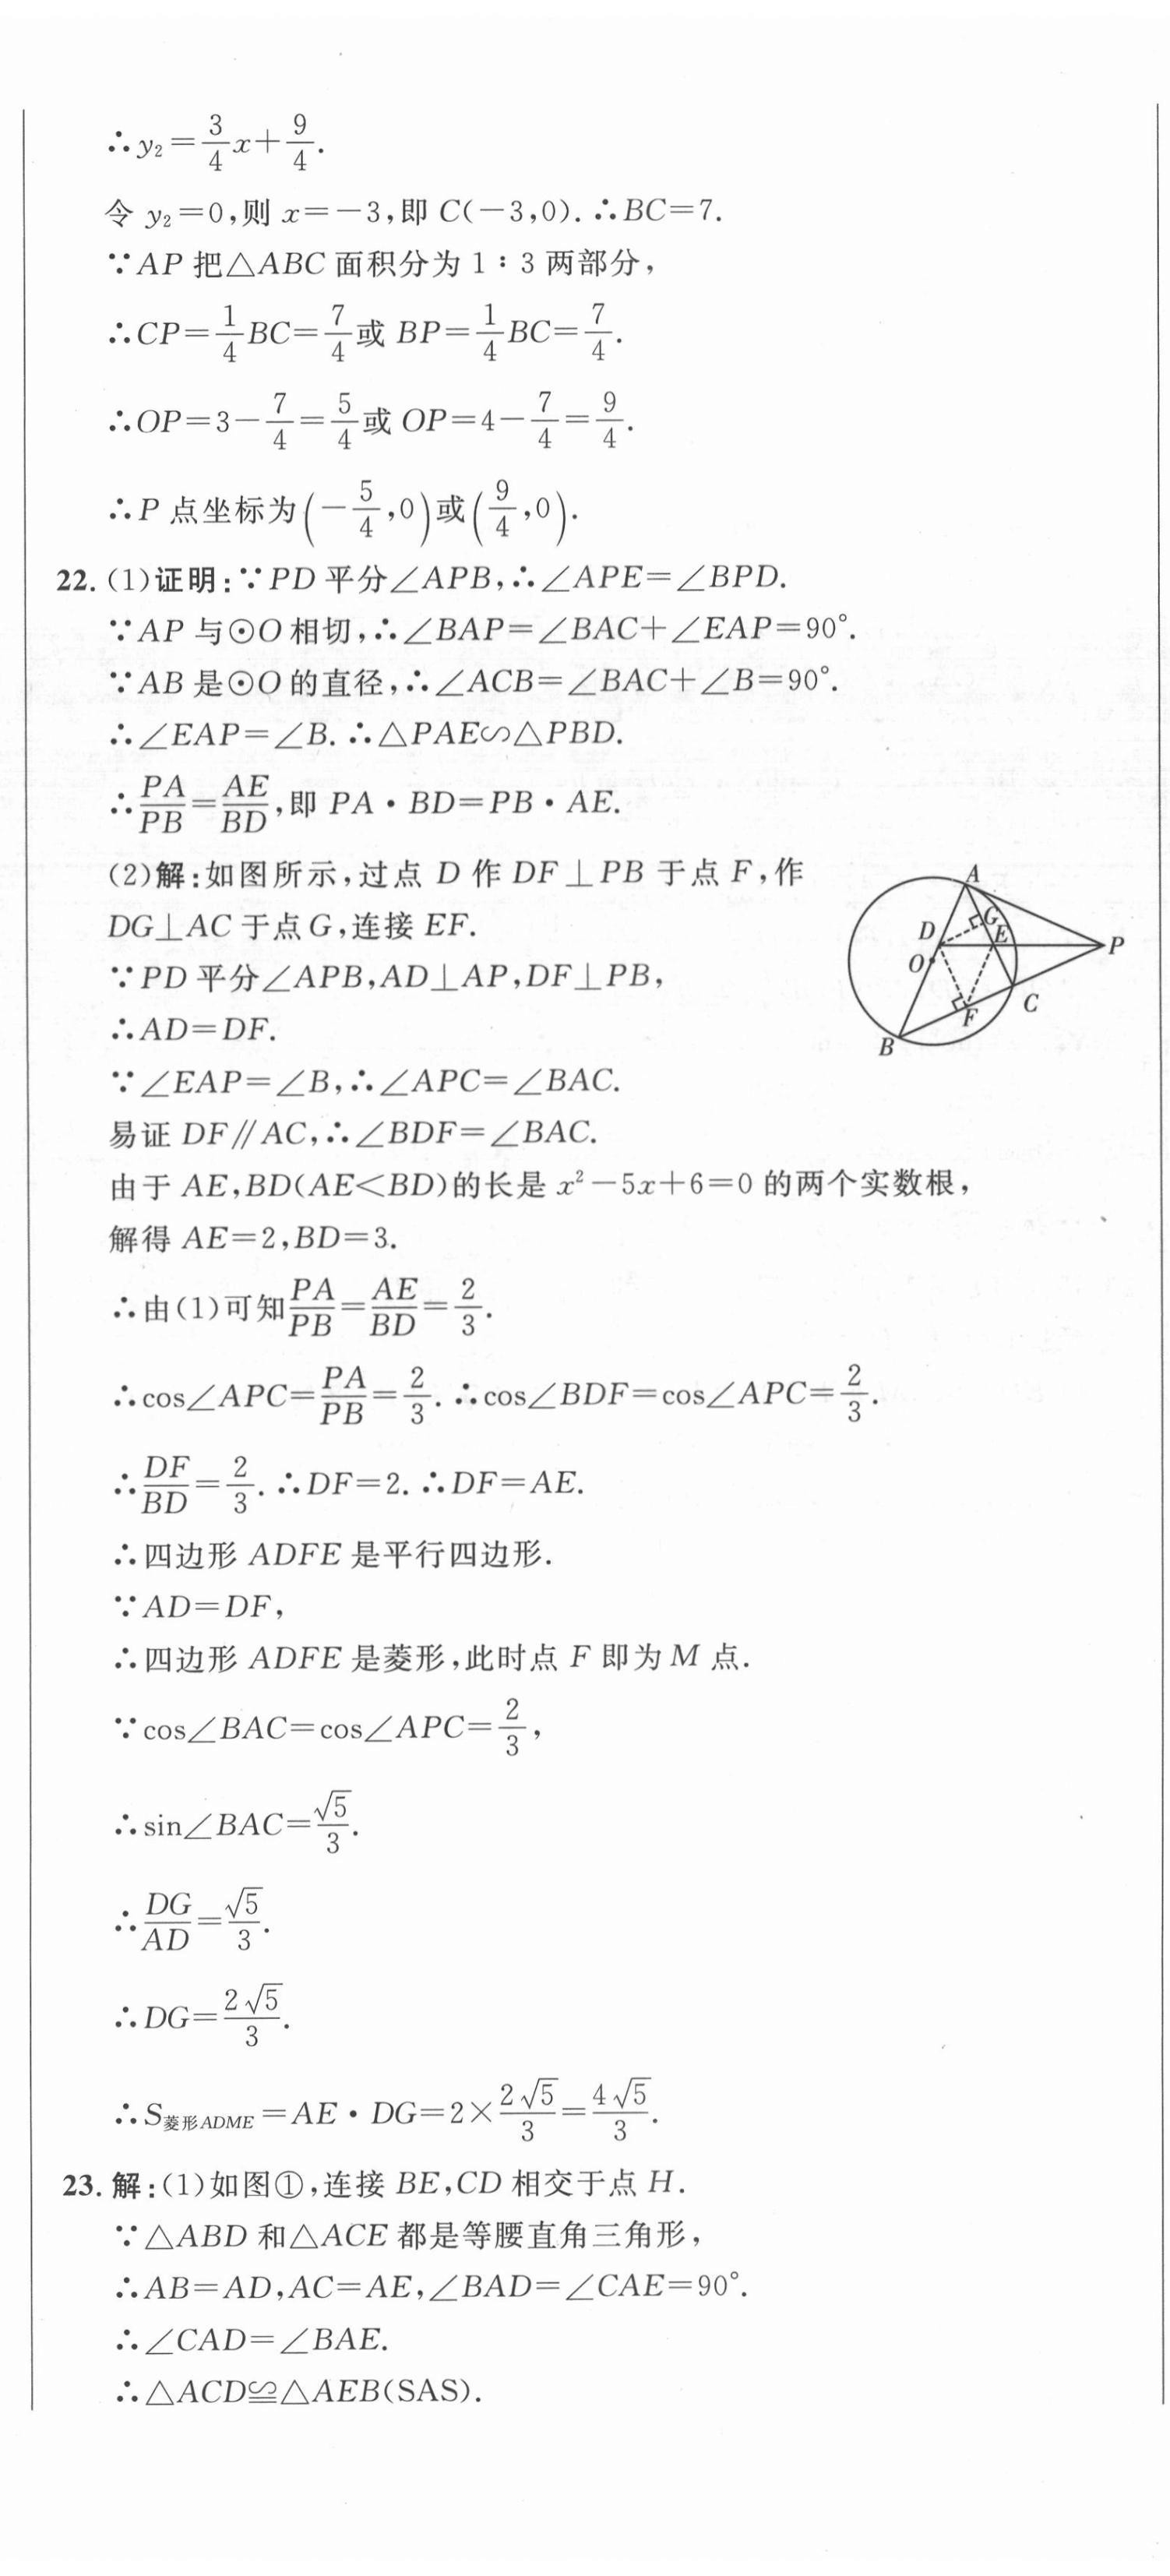 ∴y₂=3/4x+9/4.
令 y₂=0,则 x=-3,即 C(-3,0). ∴BC=7.
∵AP 把△ABC 面积分为 1∶3 两部分,
∴CP=1/4BC=7/4或 BP=1/4BC=7/4.
∴OP=3-7/4=5/4或 OP=4-7/4=9/4.
∴P 点坐标为(-5/4,0)或(9/4,0).
22. (1)证明:∵PD 平分∠APB,∴∠APE=∠BPD.
∵AP 与⊙O 相切,∴∠BAP=∠BAC+∠EAP=90°.
∵AB 是⊙O 的直径,∴∠ACB=∠BAC+∠B=90°.
∴∠EAP=∠B. ∴△PAE∽△PBD.
∴PA/PB=AE/BD,即 PA·BD=PB·AE.
(2)解:如图所示,过点 D 作 DF⊥PB 于点 F,作
DG⊥AC 于点 G,连接 EF.
∵PD 平分∠APB,AD⊥AP,DF⊥PB,
∴AD=DF.
∵∠EAP=∠B,∴∠APC=∠BAC.
易证 DF∥AC,∴∠BDF=∠BAC.
A
D
G
E
P
O
F
C
B
由于 AE,BD(AE<BD)的长是 x²-5x+6=0 的两个实数根,
解得 AE=2,BD=3.
∴由(1)可知PA/PB=AE/BD=2/3.
∴cos∠APC=PA/PB=2/3. ∴cos∠BDF=cos∠APC=2/3.
∴DF/BD=2/3. ∴DF=2. ∴DF=AE.
∴四边形 ADFE 是平行四边形.
∵AD=DF,
∴四边形 ADFE 是菱形,此时点 F 即为 M 点.
∵cos∠BAC=cos∠APC=2/3,
∴sin∠BAC=√5/3.
∴DG/AD=√5/3.
∴DG=2√5/3.
∴S菱形ADME=AE·DG=2×2√5/3=4√5/3.
23. 解:(1)如图①,连接 BE,CD 相交于点 H.
∵△ABD 和△ACE 都是等腰直角三角形,
∴AB=AD,AC=AE,∠BAD=∠CAE=90°.
∴∠CAD=∠BAE.
∴△ACD≌△AEB(SAS).